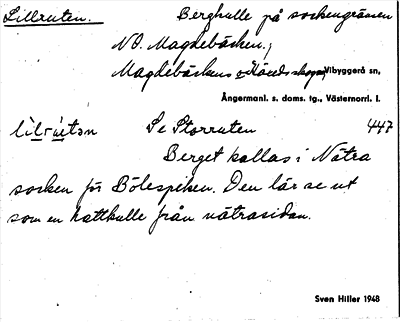 Lillruten. Berghulle på sockengränsen
N.O. Magdebäcken,
Magdebäckens o. Vibyggerå sn,
Ångermanl. s. doms. tg., Västernorrl. l.
Se Storruten 447
Berget kallas i Nätra
socken för Bölespiken. Den lär se ut
som en hattkulle från nätrasidan.
Sven Hiller 1948